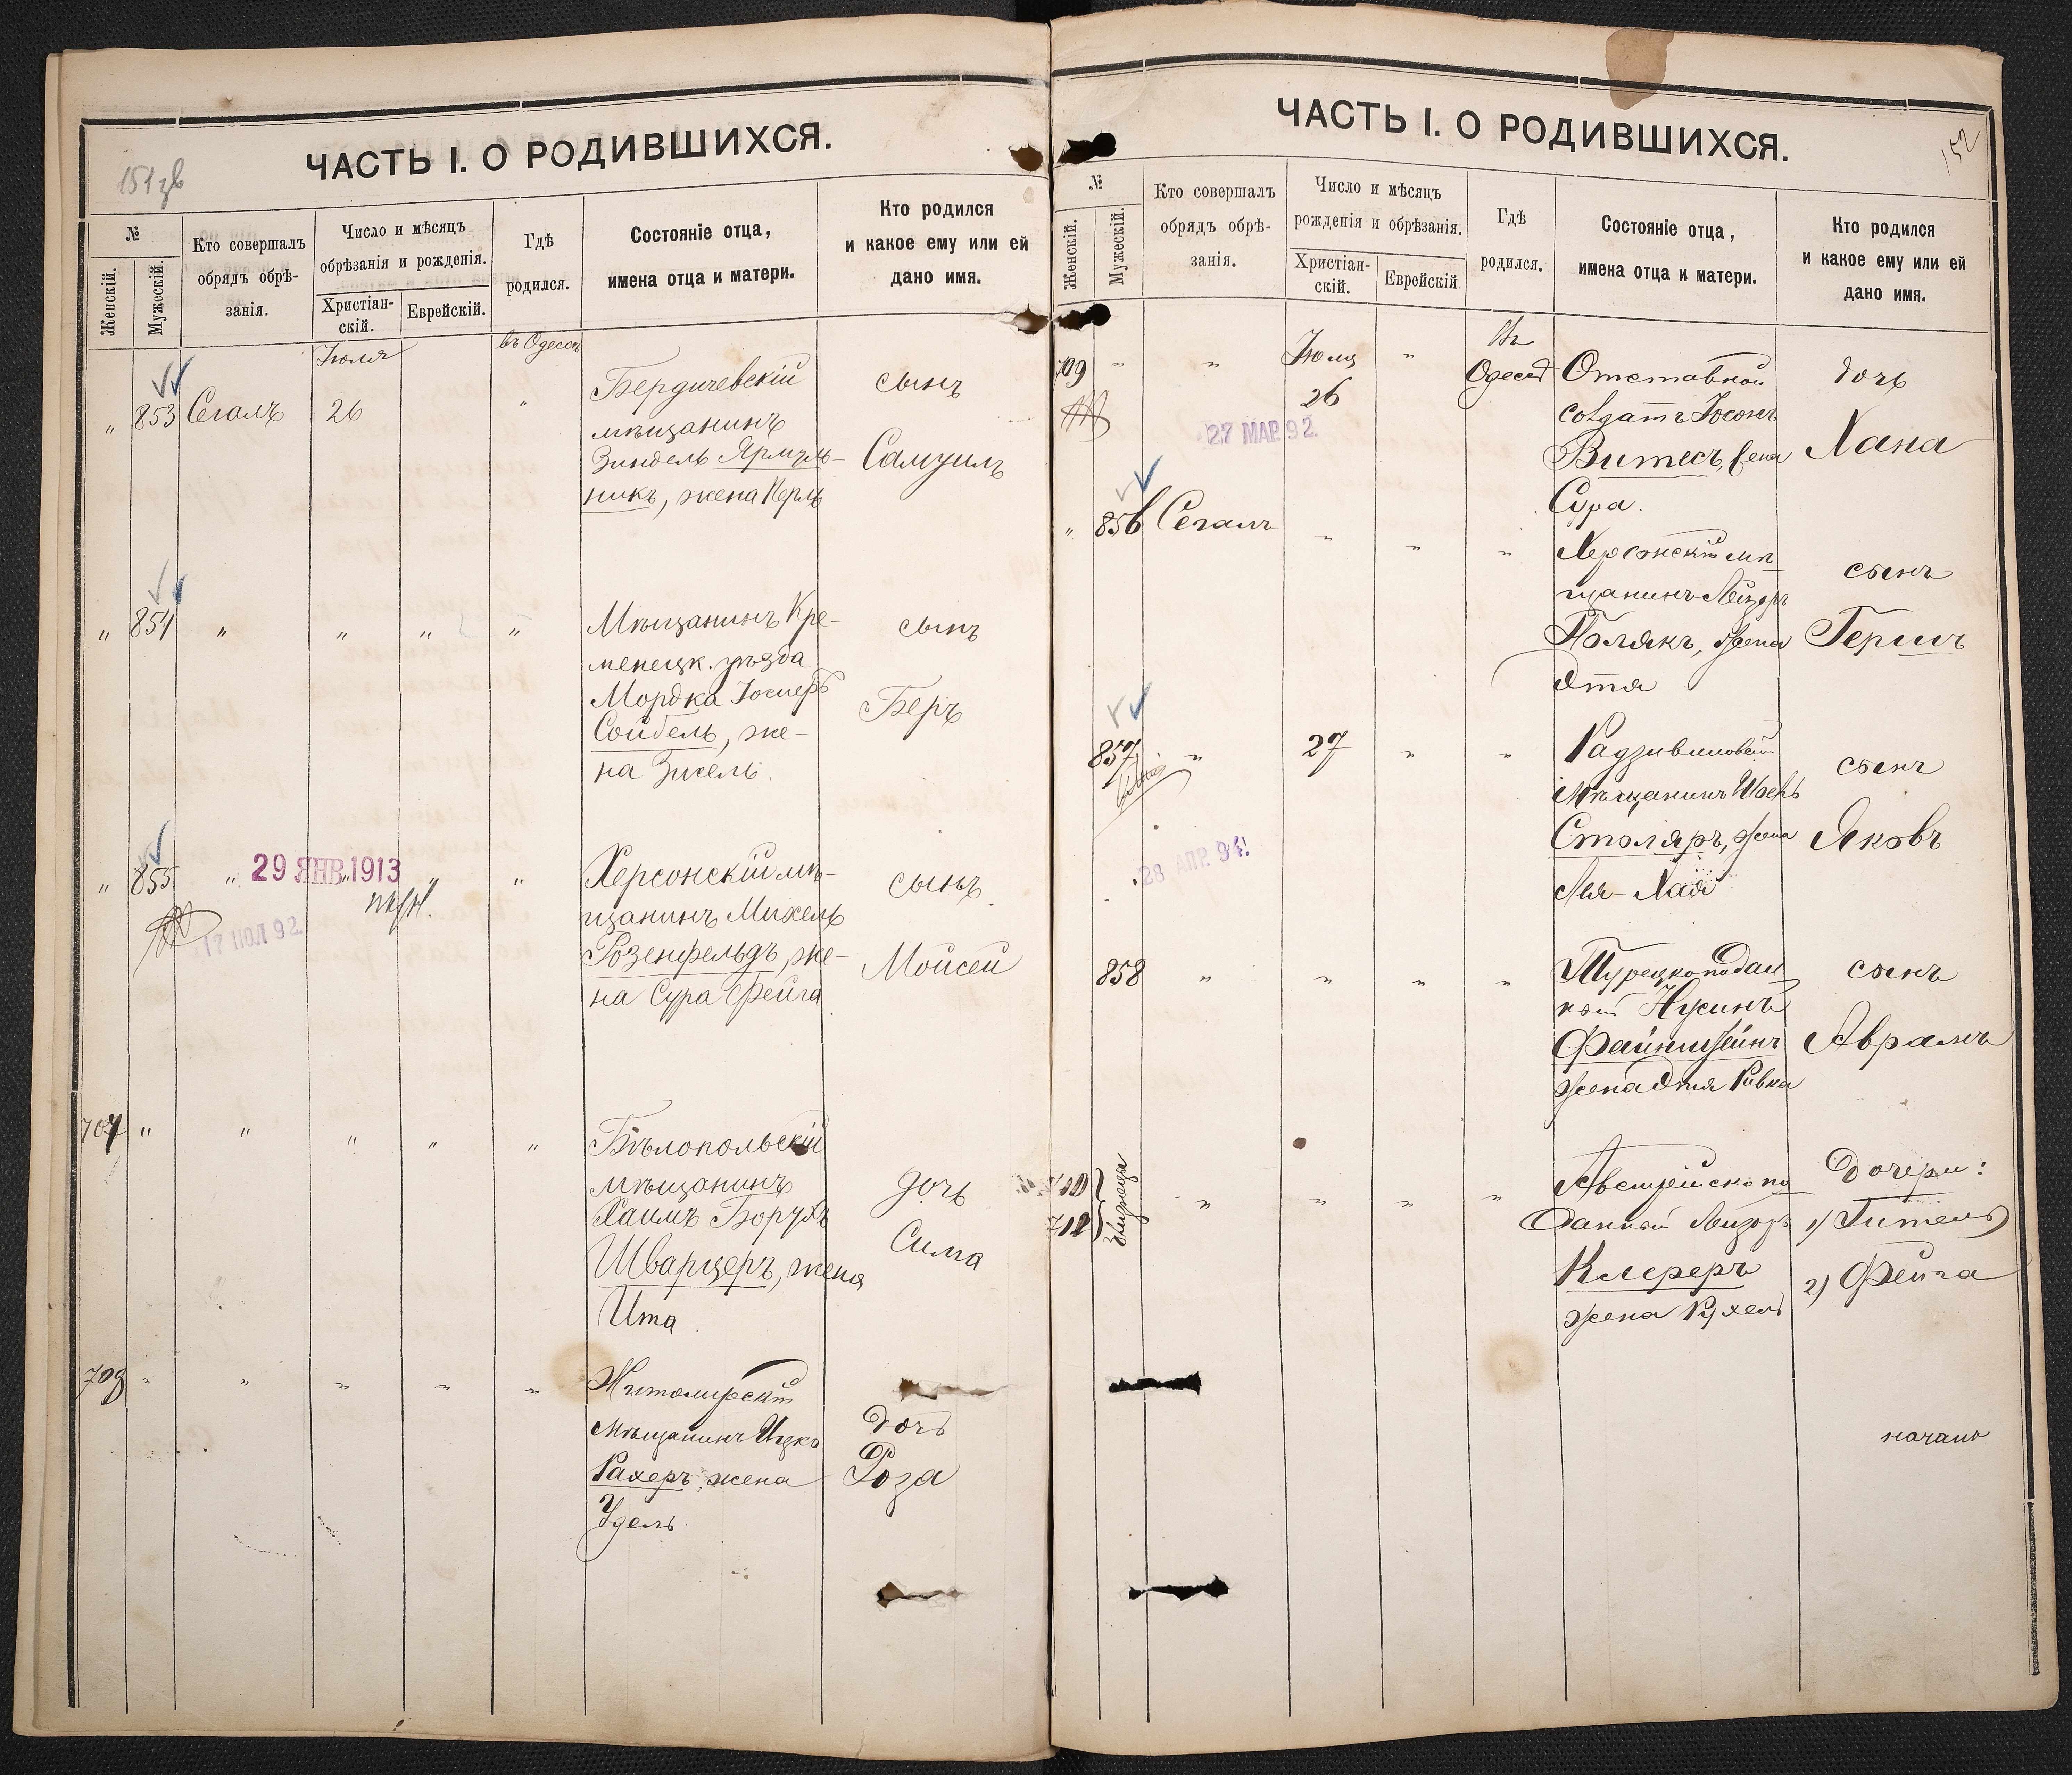 ЧАСТЬ I. О РОДИВШИХСЯ.
№
Женскій.
Мужескій.
Кто совершалъ
обрядъ обрѣ-
занія.
Число и мѣсяцъ
обрѣзанія и рожденія.
Христіан-
скій.
Еврейскій.
Гдѣ
родился.
Состояніе отца,
имена отца и матери.
Кто родился
и какое ему или ей
дано имя.
Іюля
въ Одессѣ
„ 853 Сегалъ 26 „
Бердичевскій
мѣщанинъ
Зиндель Ярмуль-
никъ, жена Перль
сынъ
Самуилъ
„ 854 „ „ „ „
Мѣщанинъ Кре-
менецк. уѣзда
Мордка Іосифъ
Сойбель, же-
на Зисель.
сынъ
Беръ
„ 855 „ „ „ „
29 ЯНВ.1913
17 ІЮЛ 92
Херсонскій мѣ-
щанинъ Михель
Розенфельдъ, же-
на Сура Фейга
сынъ
Мойсей
707 „ „ „ „ „
Бѣлопольскій
мѣщанинъ
Хаимъ Борухъ
Шварцеръ, жена
Ита
дочь
Сима
708 „ „ „ „ „
Житомирскій
мѣщанинъ Ицко
Рахеръ, жена
Удель
дочь
Роза
152
ЧАСТЬ I. О РОДИВШИХСЯ.
№
Женскій.
Мужескій.
Кто совершалъ
обрядъ обрѣ-
занія.
Число и мѣсяцъ
рожденія и обрѣзанія.
Христіан-
скій.
Еврейскій.
Гдѣ
родился.
Состояніе отца,
имена отца и матери.
Кто родился
и какое ему или ей
дано имя.
709 „ „ Іюля 26 „ Въ Одессѣ
27 МАР. 92.
Отставной
солдатъ Іосонъ
Витесъ, жена
Сура.
дочь
Хана
„ 856 Сегалъ „ „ „
Херсонскій мѣ-
щанинъ Лейзоръ
Полякъ, жена
Этя
сынъ
Гершъ
857 „ 27 „ „
28 АПР. 94.
Радзивиловскій
мѣщанинъ
Столяръ, жена
Лея-Хая
сынъ
Яковъ
858 „ „ „ „
Турецкоподдан
ный Нусинъ
Файнштейнъ
жена Этя Ривка
сынъ
Аврамъ
близнецы
„ „ „ „
Австрійскопо
данный Лейзоръ
Клеферъ
жена Рухель
Дочери:
1) Гитель
2) Фейга